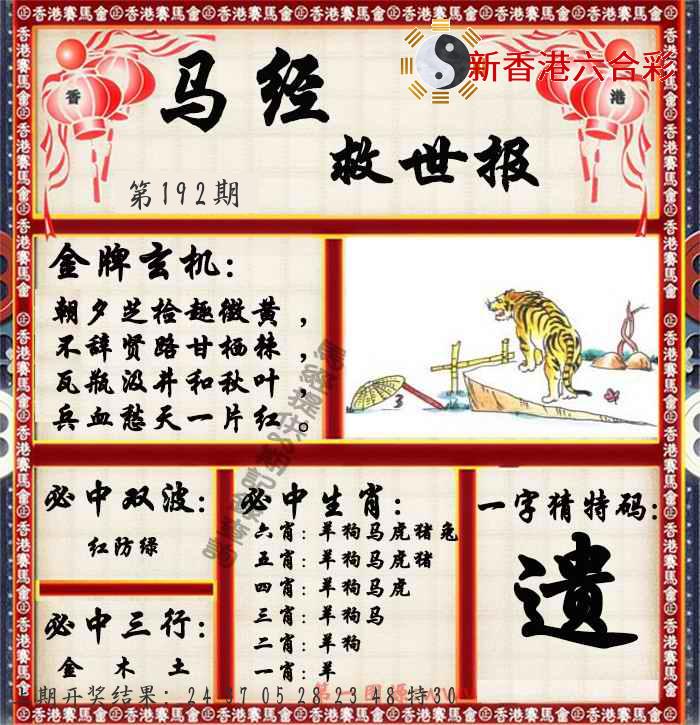 新香港六合彩
香
港
马经
救世报
第192期
金牌玄机：
朝夕芝拾趣微黄，
不辞贤路甘栖棘，
瓦瓶汲井和秋叶，
兵血愁天一片红。
3
必中双波：
红防绿
必中三行：
金 木 土
必中生肖：
六肖：羊狗马虎猪兔
五肖：羊狗马虎猪
四肖：羊狗马虎
三肖：羊狗马
二肖：羊狗
一肖：羊
一字猜特码：
遗
期开奖结果：24 37 05 28 23 48 特30
香港賽馬會